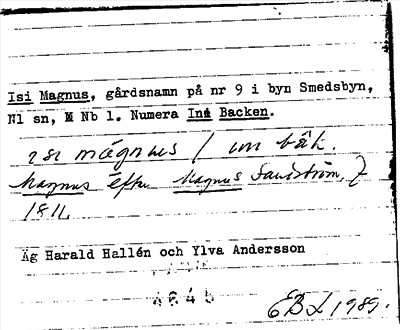 Isi Magnus, gårdsnamn på nr 9 i byn Smedsbyn,
Nl sn, Nb l. Numera Ini Backen.
ısı mágnus / un bäk.
Magnus efter Magnus Sandström, f
1811.
Ag Harald Hallén och Ylva Andersson
EBL 1989.